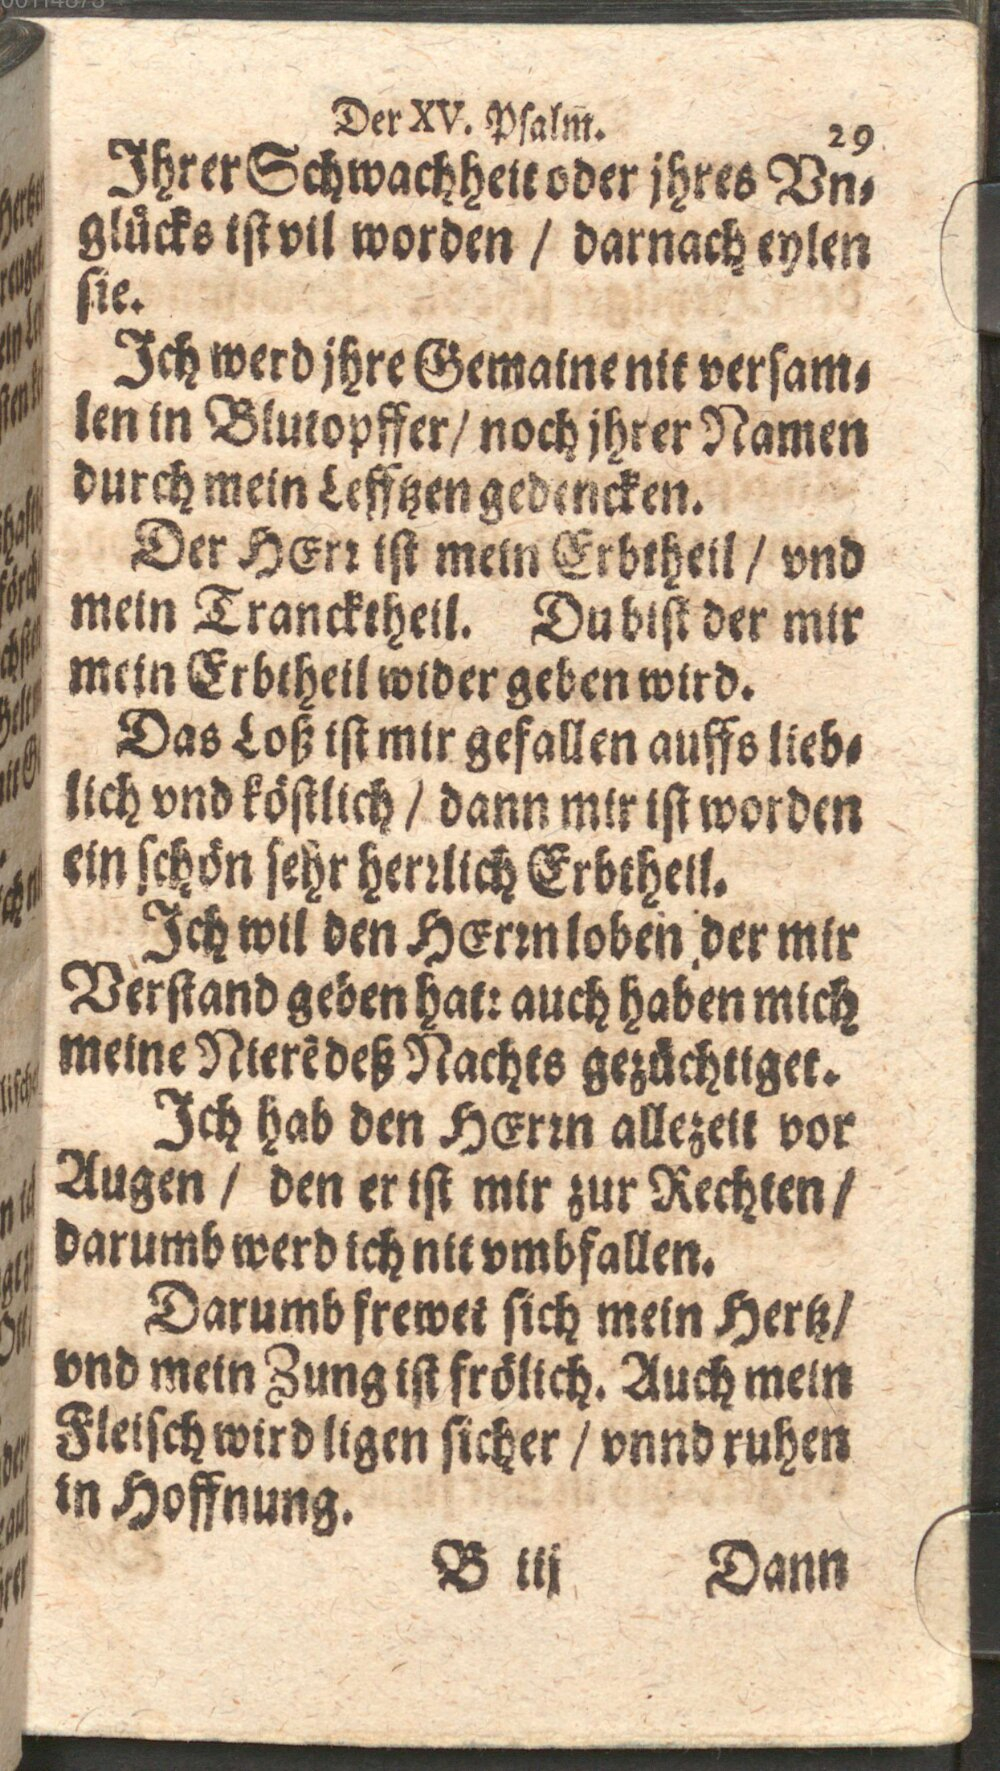 Der XV. Psalm̃. 29
Ihrer Schwachheit oder jhres Vn⸗
glücks ist vil worden / darnach eylen
sie.
Ich werd jhre Gemaine nit versam⸗
len in Blutopffer / noch jhrer Namen
durch mein Lefftzen gedencken.
Der HErr ist mein Erbtheil / vnd
mein Trancktheil. Du bist der mir
mein Erbtheil wider geben wird.
Das Loß ist mir gefallen auffs lieb⸗
lich vnd köstlich / dann mir ist worden
ein schön sehr herrlich Erbtheil.
Ich wil den HErrn loben der mir
Verstand geben hat: auch haben mich
meine Nierẽ deß Nachts gezüchtiget.
Ich hab den HErrn allezeit vor
Augen / den er ist mir zur Rechten /
darumb werd ich nit vmbfallen.
Darumb frewet sich mein Hertz /
vnd mein Zung ist frölich. Auch mein
Fleisch wird ligen sicher / vnnd ruhen
in Hoffnung.
B iij Dann